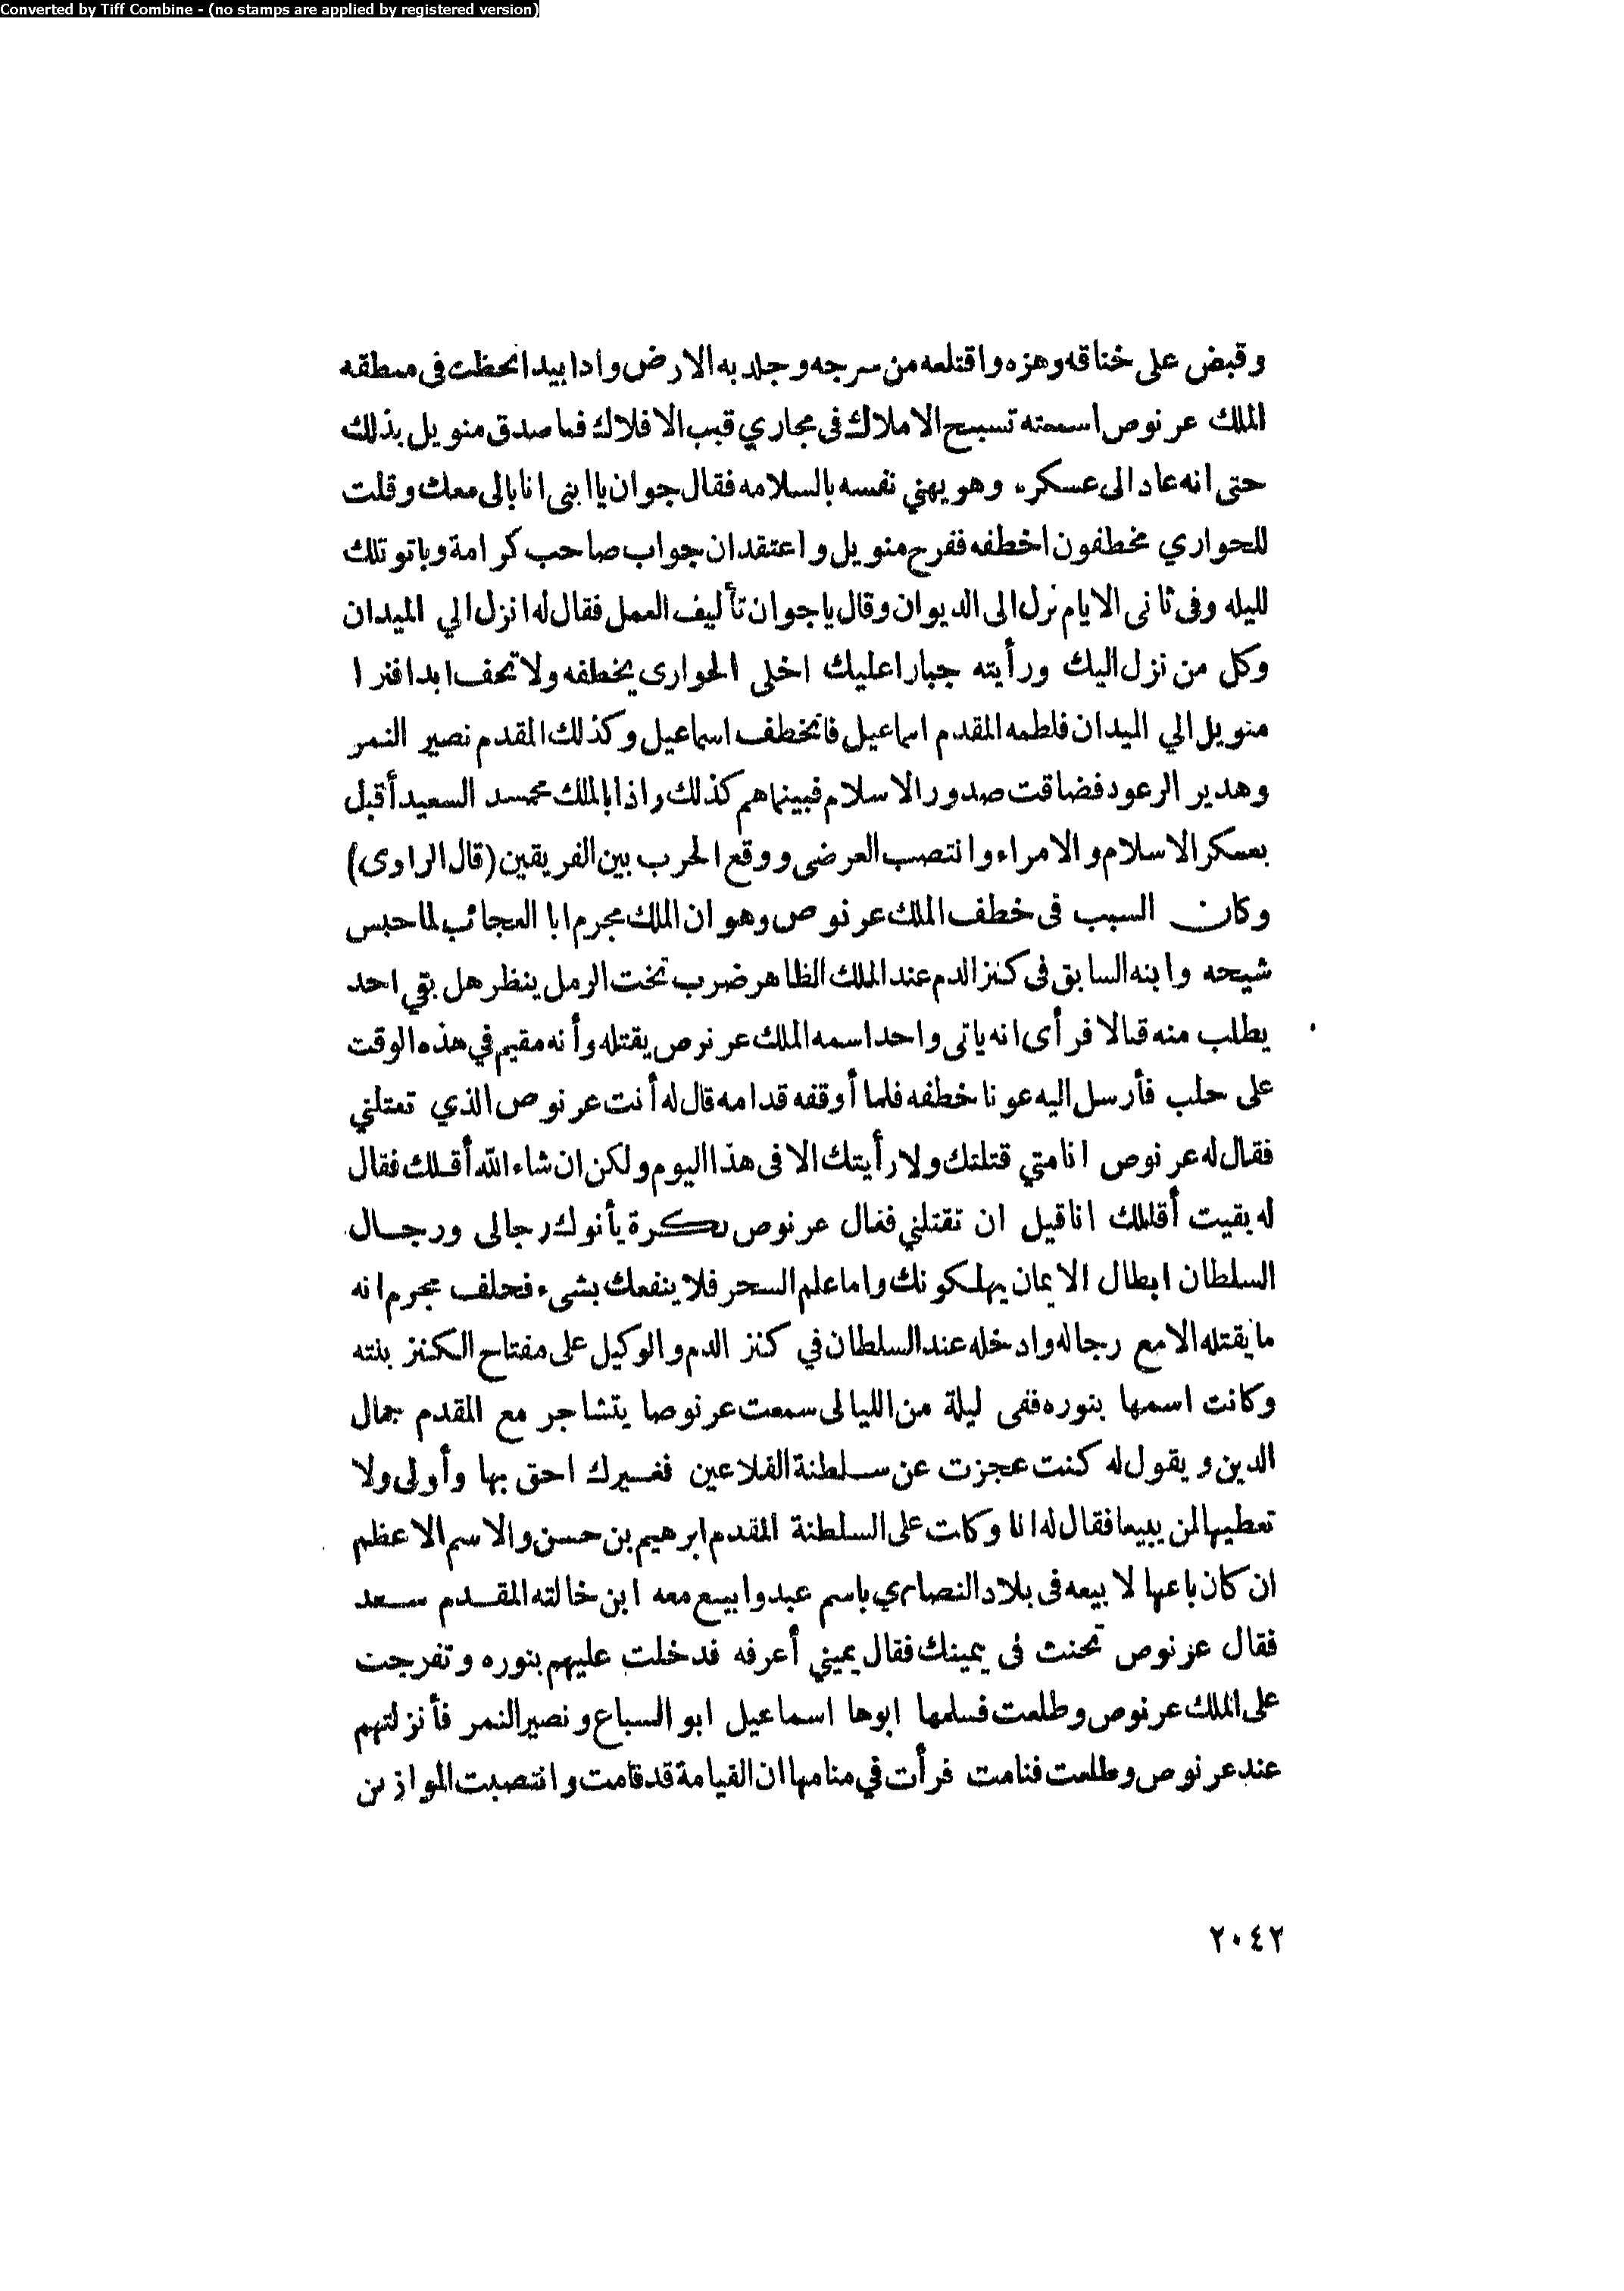 Converted by Tiff Combine - (no stamps are applied by registered version)
وقبض على خناقه وهزه واقتلعه من سرجه وجلد به الارض وادا بيد انحظت فى مبطقه
الملك عرنوص اسمعته تسبيح الاملاك فى مجاري قبب الافلاك فما صدق منويل بذلك
حتى انه عاد الى عسكره وهو يهني نفسه بالسلامه فقال جوان يا ابنى انا بالى معك وقلت
للحواري مخطفون اخطفه ففرح منويل واعتقد ان جواب صاحب كرامة وباتو تلك
لليله وفى ثانى الايام نرل الى الديوان وقال ياجوان تأليف العمل فقال له انزل الي الميدان
وكل من نزل اليك ورأيته جبارا عليك اخلى الحوارى يخطفه ولا تحف ابدا فنرا
منويل الي الميدان فلطمه المقدم اسماعيل فانخطف اسماعيل وكذلك المقدم نصير النمر
وهدير الرعود فضاقت صدور الاسلام فبينماهم كذلك واذا بالملك محمد السعيد أقبل
بعسكر الاسلام والامراء وانتصب العرضى ووقع الحرب بين الفريقين (قال الراوى)
وكان السبب فى خطف الملك عرنوص وهو ان الملك مجرم ابا العجائب لما حبس
شيحه وابنه السابق فى كنز الدم عند الملك الظاهر ضرب تخت الرمل ينظر هل بقي احد
يطلب منه قتالا فرأى انه ياتى واحد اسمه الملك عرنرص يقتله وأنه مقيم في هذه الوقت
على حلب فأرسل اليه عونا خطفه فلما أوقفه قدامه قال له أنت عرنوص الذي تعتلني
فقال له عرنوص انا متي قتلتك ولا رأيتك الا فى هذا اليوم ولكن ان شاء الله أقتلك فقال
له بقيت أقتلك انا قبل ان تقتلني فقال عرنوص بكرة يأنوك رجالى ورجال
السلطان ابطال الايمان يهلكونك واما علم السحر فلا ينفعك بشىء فحلف مجرم انه
ما يقتله الا مع رجاله وادخله عند السلطان في كنز الدم والوكيل على مفتاح الكنز بنته
وكانت اسمها بنوره ففى ليلة من الليالى سمعت عرنوصا يتشاجر مع المقدم جمال
الدين ويقول له كنت عجزت عن سلطنة القلاعين فغيرك احق بها وأولى ولا
تعطيها لمن يبيعا فقال له انا وكلت على السلطنة المقدم ابرهيم بن حسن والاسم الاعظم
ان كان باعها لا بيعه فى بلاد النصاري باسم عبد وابيع معه ابن خالته المقدم سعد
فقال عرنوص تحنث فى يمينك فقال يميني أعرفه فدخلت عليهم بنوره وتفرجت
على الملك عرنوص وطلعت فسلمها ابوها اسماعيل ابو السباع ونصير النمر فأنزلتهم
عند عرنوص وطلعت فنامت فرأت في منامها ان القيامة قد قامت وانتصبت الموازين
٢٠٤٢